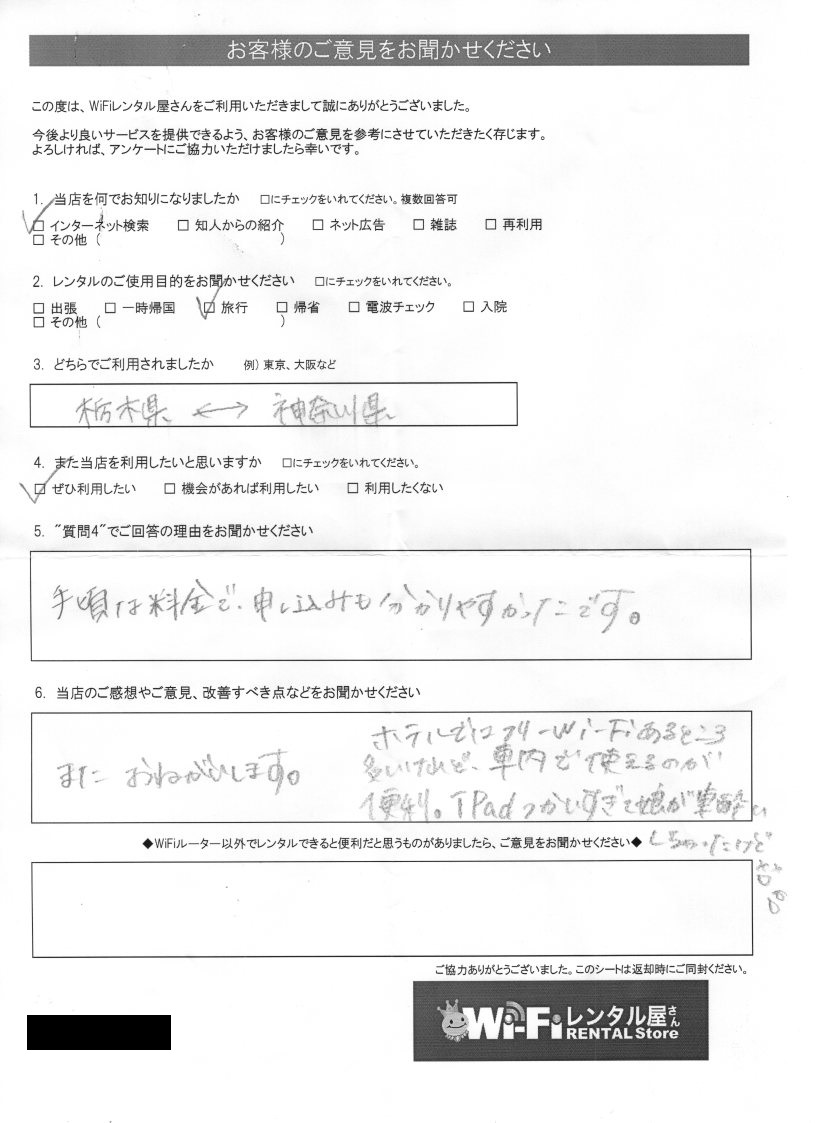 お客様のご意見をお聞かせください
この度は、WiFiレンタル屋さんをご利用いただきまして誠にありがとうございました。
今後より良いサービスを提供できるよう、お客様のご意見を参考にさせていただきたく存じます。
よろしければ、アンケートにご協力いただけましたら幸いです。
1. 当店を何でお知りになりましたか □にチェックをいれてください。複数回答可
☑ インターネット検索 □ 知人からの紹介 □ ネット広告 □ 雑誌 □ 再利用
□ その他 ( )
2. レンタルのご使用目的をお聞かせください □にチェックをいれてください。
□ 出張 □ 一時帰国 ☑ 旅行 □ 帰省 □ 電波チェック □ 入院
□ その他 ( )
3. どちらでご利用されましたか 例) 東京、大阪など
栃木県 ←→ 神奈川県
4. また当店を利用したいと思いますか □にチェックをいれてください。
☑ ぜひ利用したい □ 機会があれば利用したい □ 利用したくない
5. "質問4"でご回答の理由をお聞かせください
手頃な料金で、申し込みも分かりやすかったです。
6. 当店のご感想やご意見、改善すべき点などをお聞かせください
また おねがいします。
ホテルではフリーWi-Fiあるところ
多いけれど、車内で使えるのが
便利。IPadつかいすぎて娘が車酔い
しちゃったけど
◆WiFiルーター以外でレンタルできると便利だと思うものがありましたら、ご意見をお聞かせください◆
ご協力ありがとうございました。このシートは返却時にご同封ください。
Wi-Fiレンタル屋さん
RENTAL Store